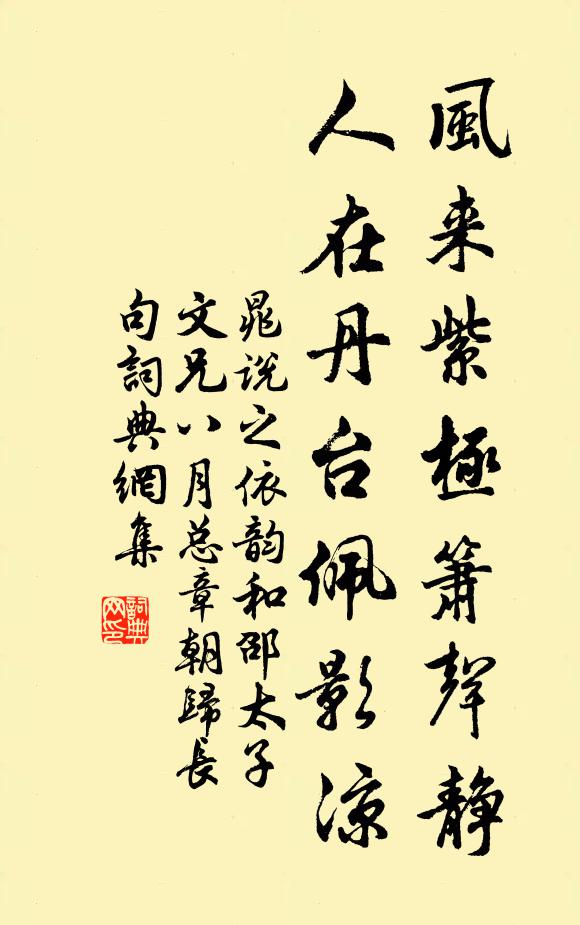 風来紫極簫聲静
人在丹台佩影凉
晁说之依韵和邵太子
文兄八月总章朝歸長
句詞典網集
詞典网印